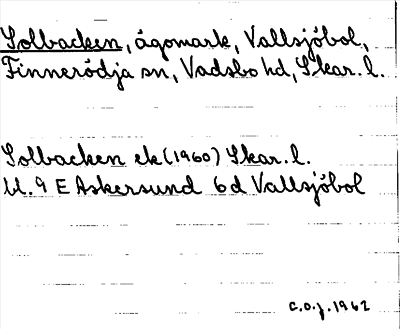 Solbacken, ägomark, Vallsjöbol,
Finnerödja sn, Vadsbo hd, Skar. l.
Solbacken ek (1960) Skar. l.
Bl. 9 E Askersund 6 d Vallsjöbol
C.O.J. 1962